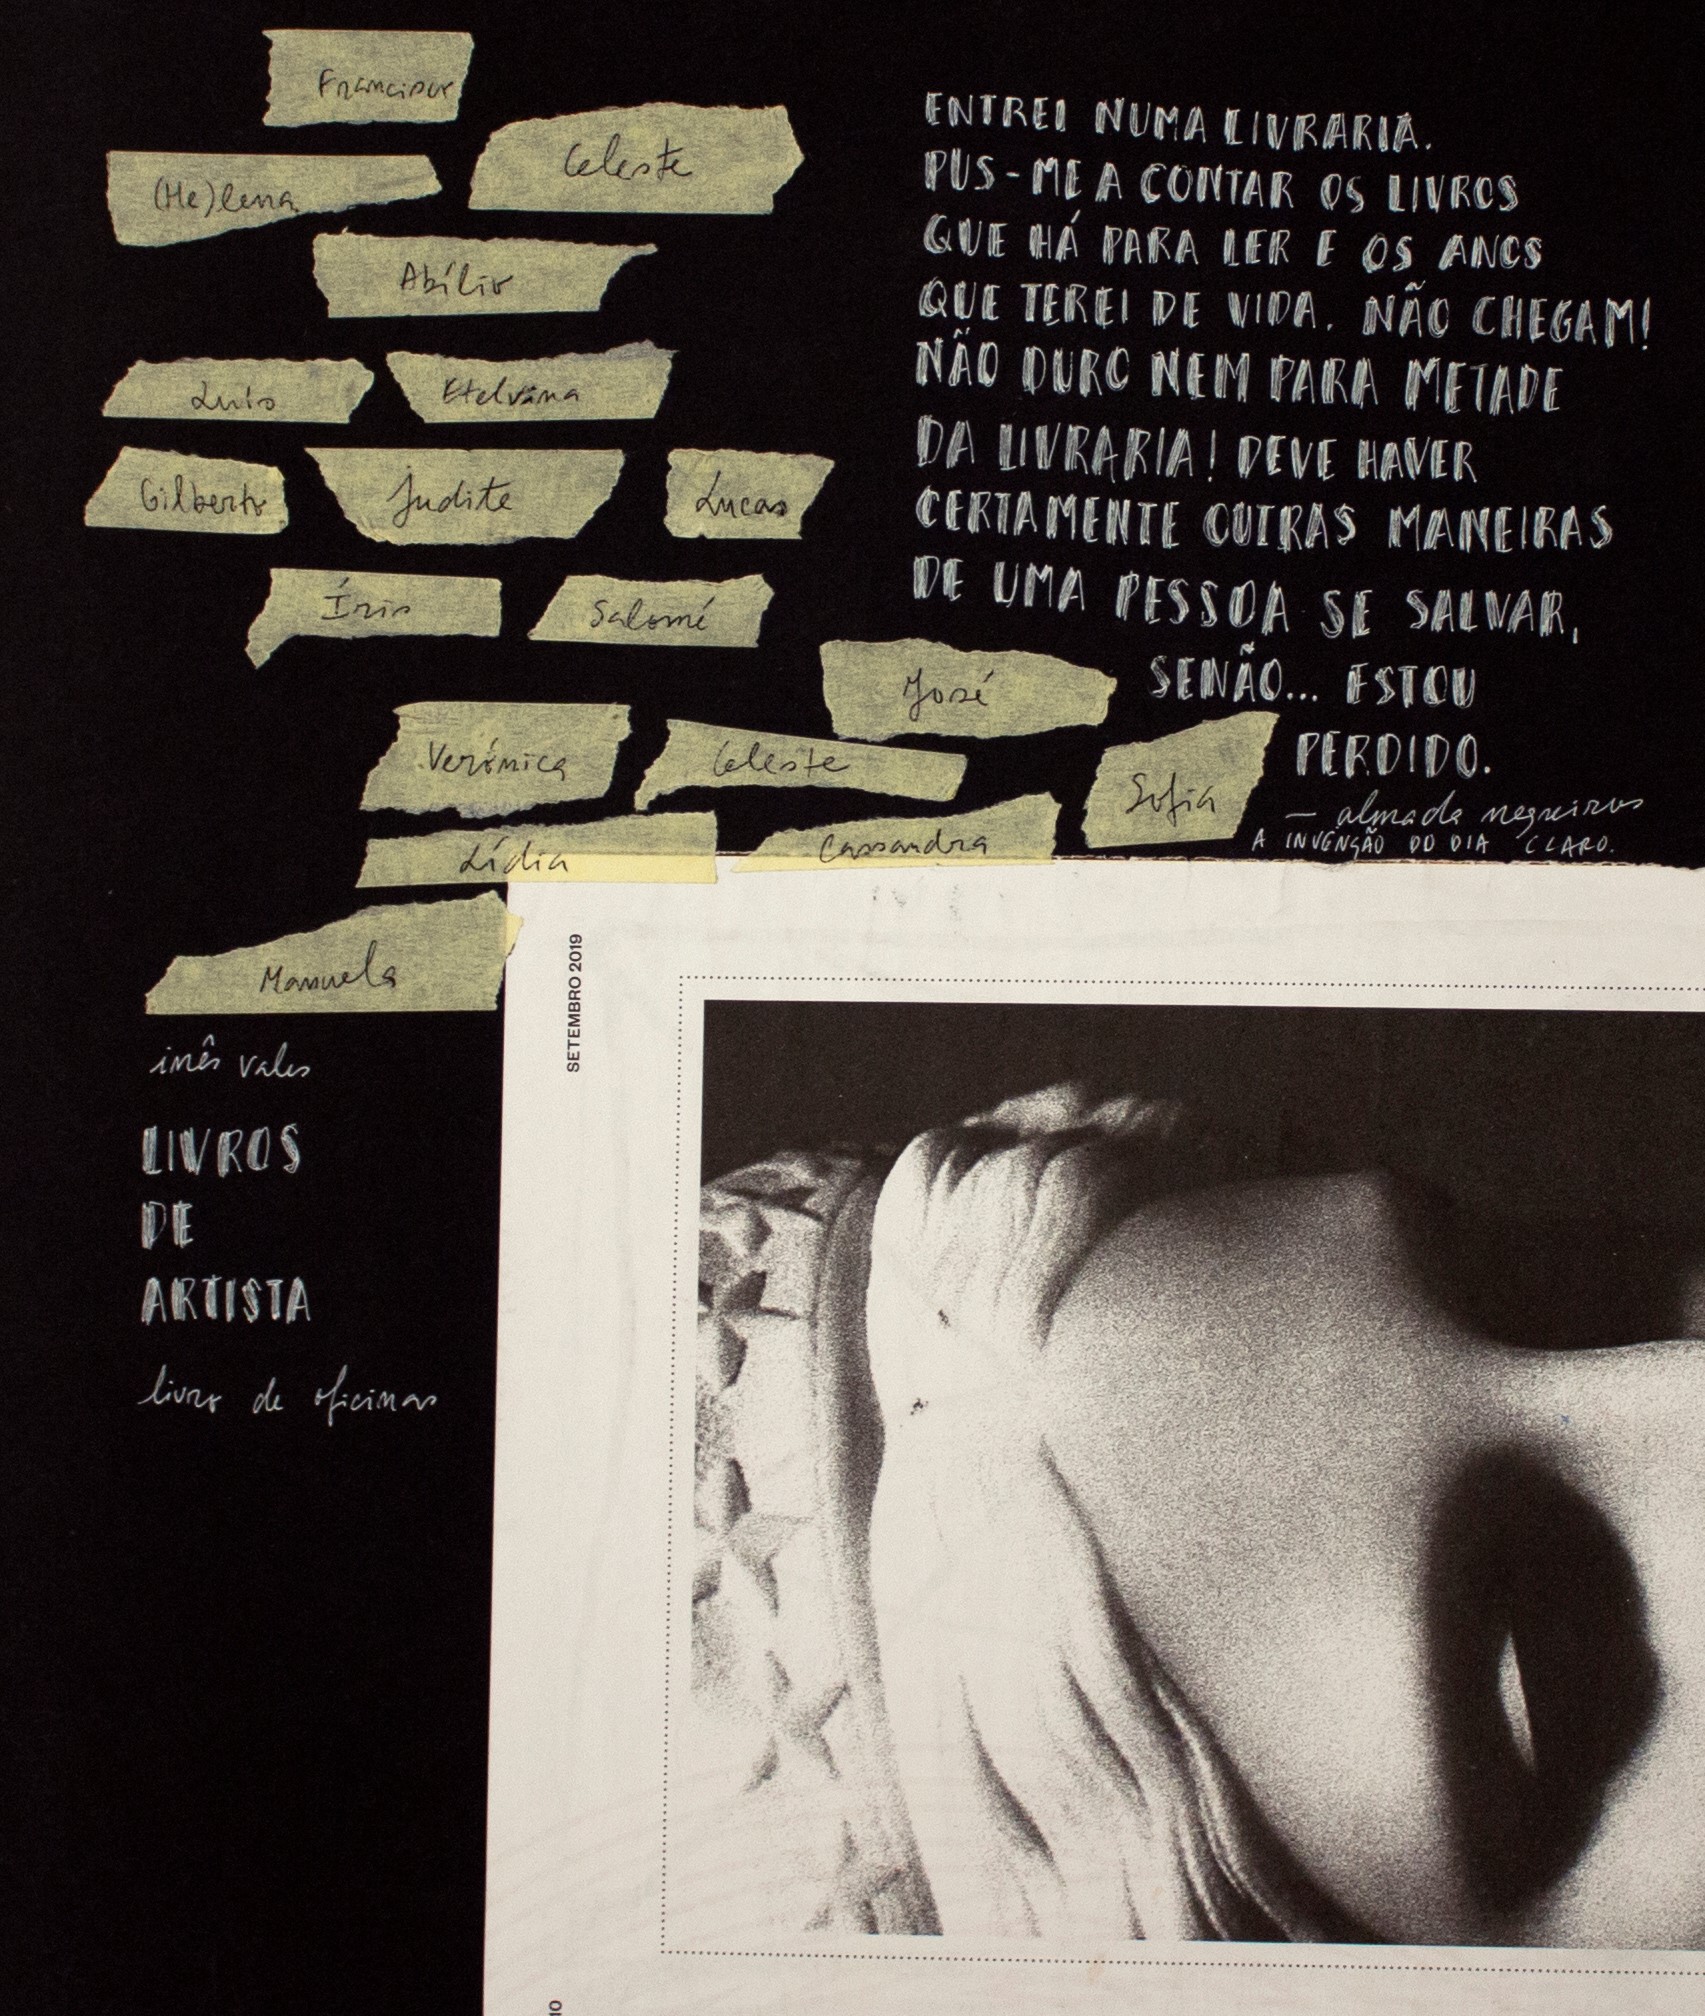 Francisco
Celeste
(He)lena
Abílio
Luís
Etelvina
Gilberto
Judite
Lucas
Íris
Salomé
José
Verónica
Celeste
Sofia
Lídia
Cassandra
Manuela
ENTREI NUMA LIVRARIA.
PUS-ME A CONTAR OS LIVROS
QUE HÁ PARA LER E OS ANOS
QUE TEREI DE VIDA. NÃO CHEGAM!
NÃO DURO NEM PARA METADE
DA LIVRARIA! DEVE HAVER
CERTAMENTE OUTRAS MANEIRAS
DE UMA PESSOA SE SALVAR,
SENÃO... ESTOU
PERDIDO.
— almada negreiros
A INVENÇÃO DO DIA CLARO.
inês vales
LIVROS
DE
ARTISTA
livro de oficinas
SETEMBRO 2019